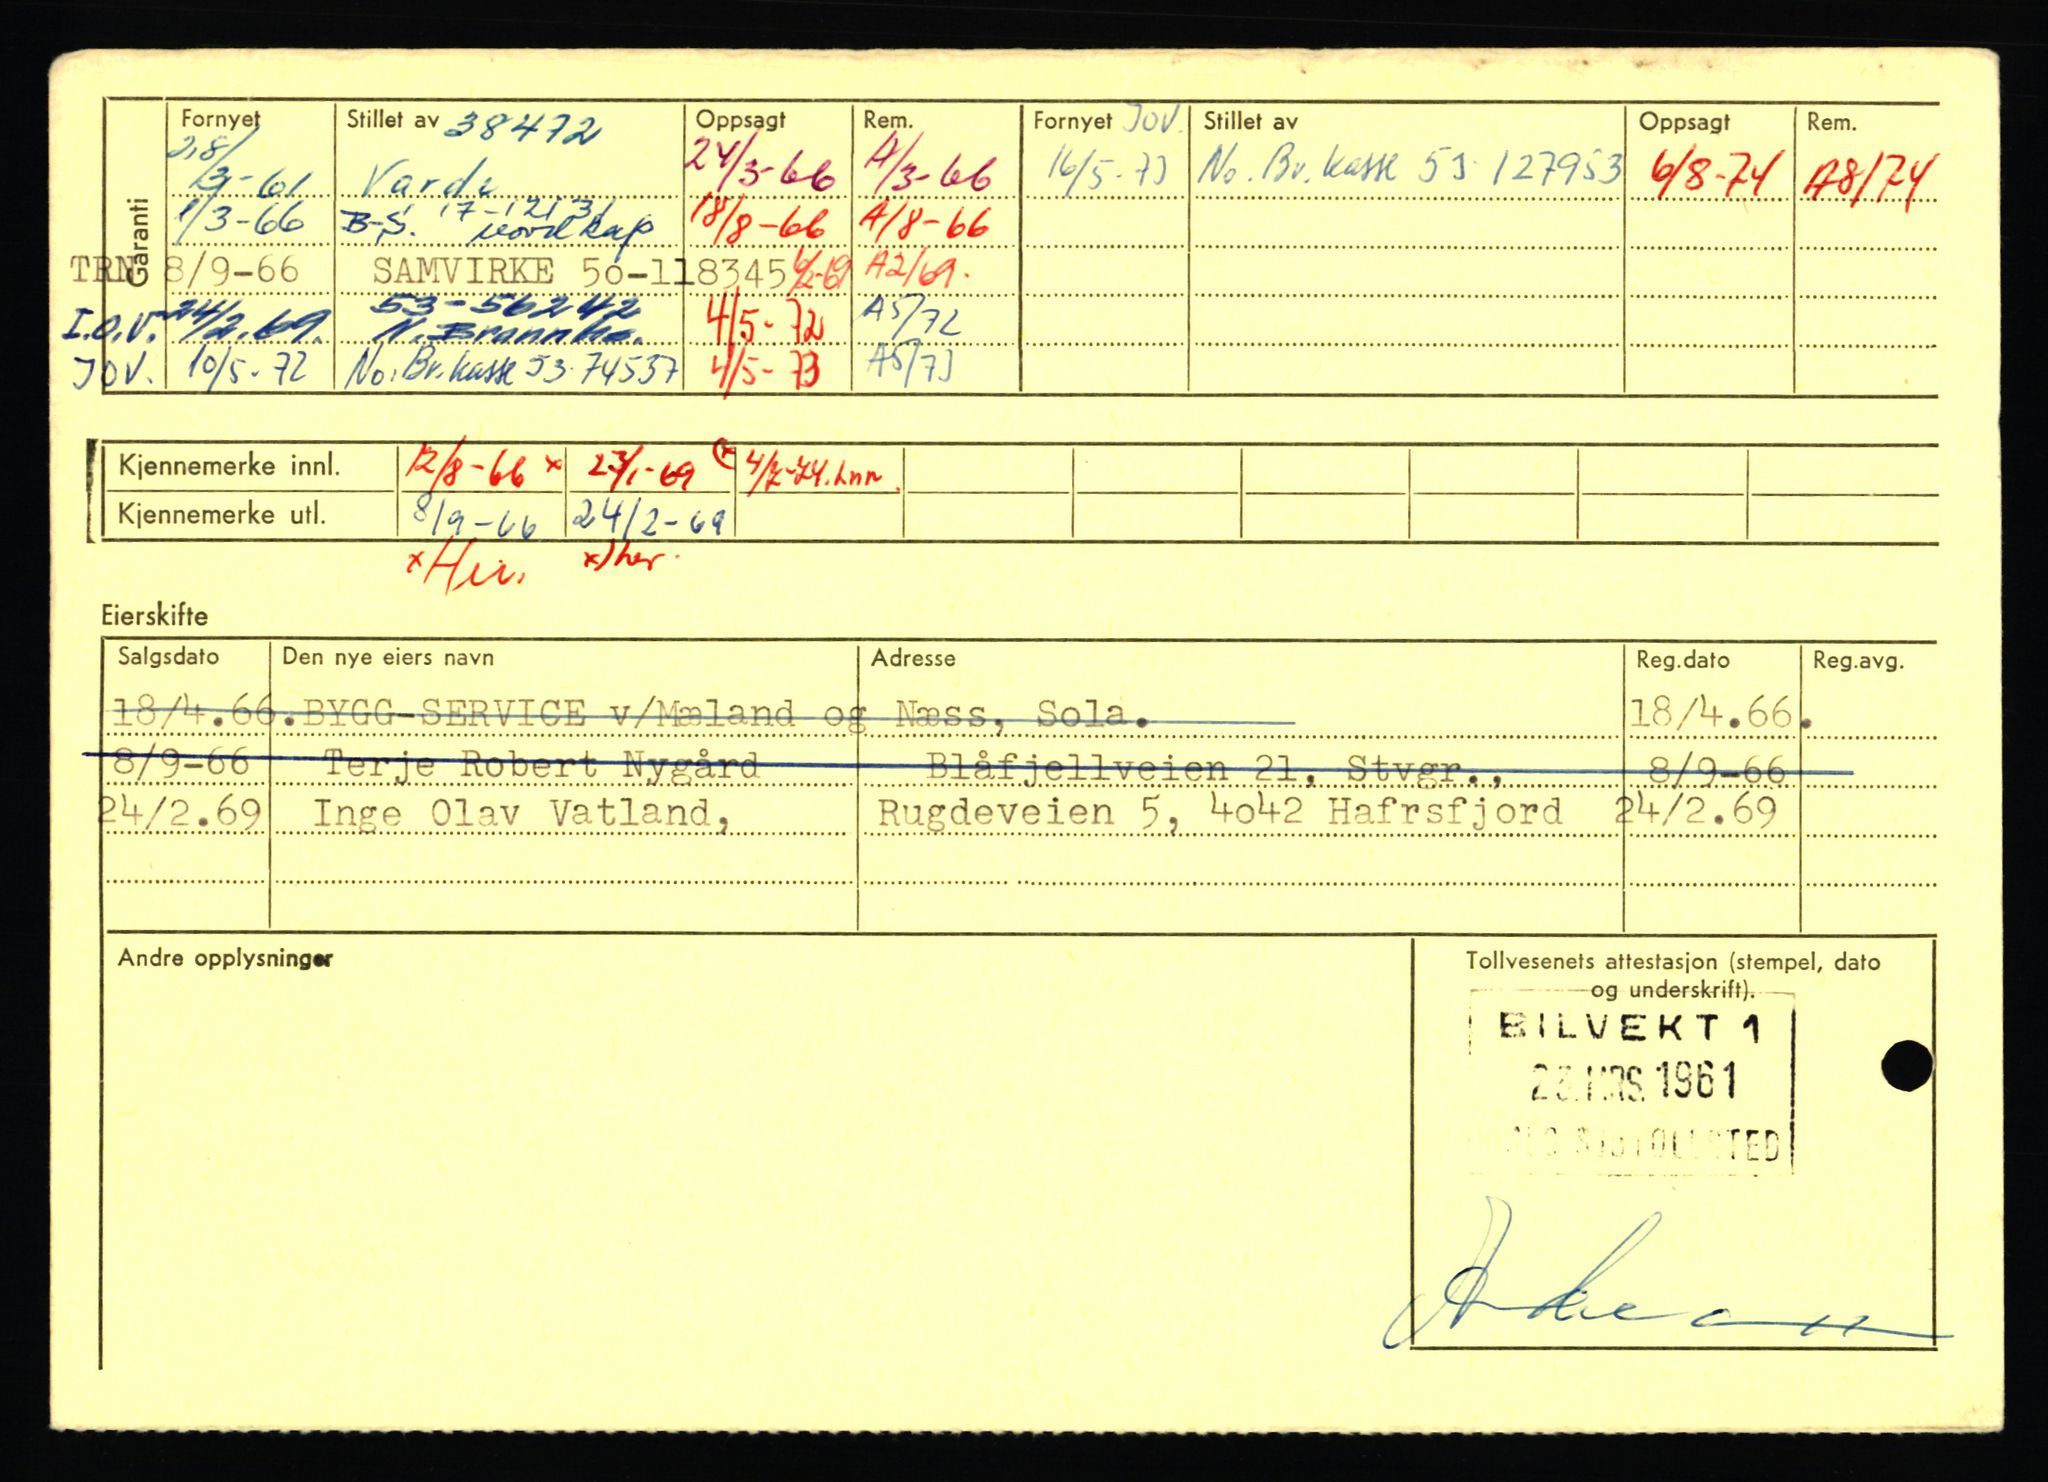 Garanti
Fornyet Stillet av 38472 Oppsagt Rem. Fornyet JOV. Stillet av Oppsagt Rem.
28/3-61 Varde 24/3-66 A/3-66 16/5-73 No. Br. kasse 53 127953 6/8-74 A8/74
1/3-66 B-S. Nordkap 18/8-66 A/8-66
TRN 8/9-66 SAMVIRKE 50-118345 6/2-69 A2/69.
I.O.V. 24/2.69. 53-56242 N. Brannka. 4/5-72 A5/72
JOV. 10/5-72 No. Br. kasse 53-74537 4/5-73 A5/73
Kjennemerke innl. 12/8-66 x 23/1-69 (x
Kjennemerke utl. 8/9-66 24/2-69
x x) her.
Eierskifte
Salgsdato Den nye eiers navn Adresse Reg.dato Reg.avg.
18/4.66. BYGG-SERVICE v/Mæland og Næss, Sola. 18/4.66.
8/9-66 Terje Robert Nygård Blåfjellveien 21, Stvgr., 8/9-66
24/2.69 Inge Olav Vatland, Rugdeveien 5, 4042 Hafrsfjord 24/2.69
Andre opplysninger
Tollvesenets attestasjon (stempel, dato
og underskrift).
BILVEKT 1
MRS. 1961